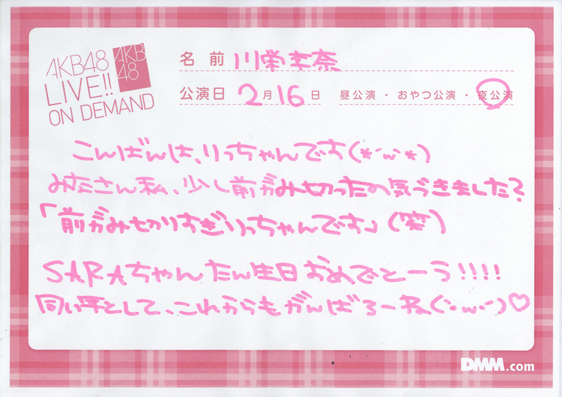 AKB48
LIVE!!
ON DEMAND
AKB
48
名前 川栄李奈
公演日 2月16日 昼公演・おやつ公演・夜公演
こんばんは、りっちゃんです(*´ω`*)
みなさん私、少し前がみ切ったの気づきました?
「前がみ切りすぎりっちゃんです」(笑)
SARAちゃんたん生日おめでとーう!!!!
同い年として、これからもがんばろーね(´・ω・`)♡
DMM.com